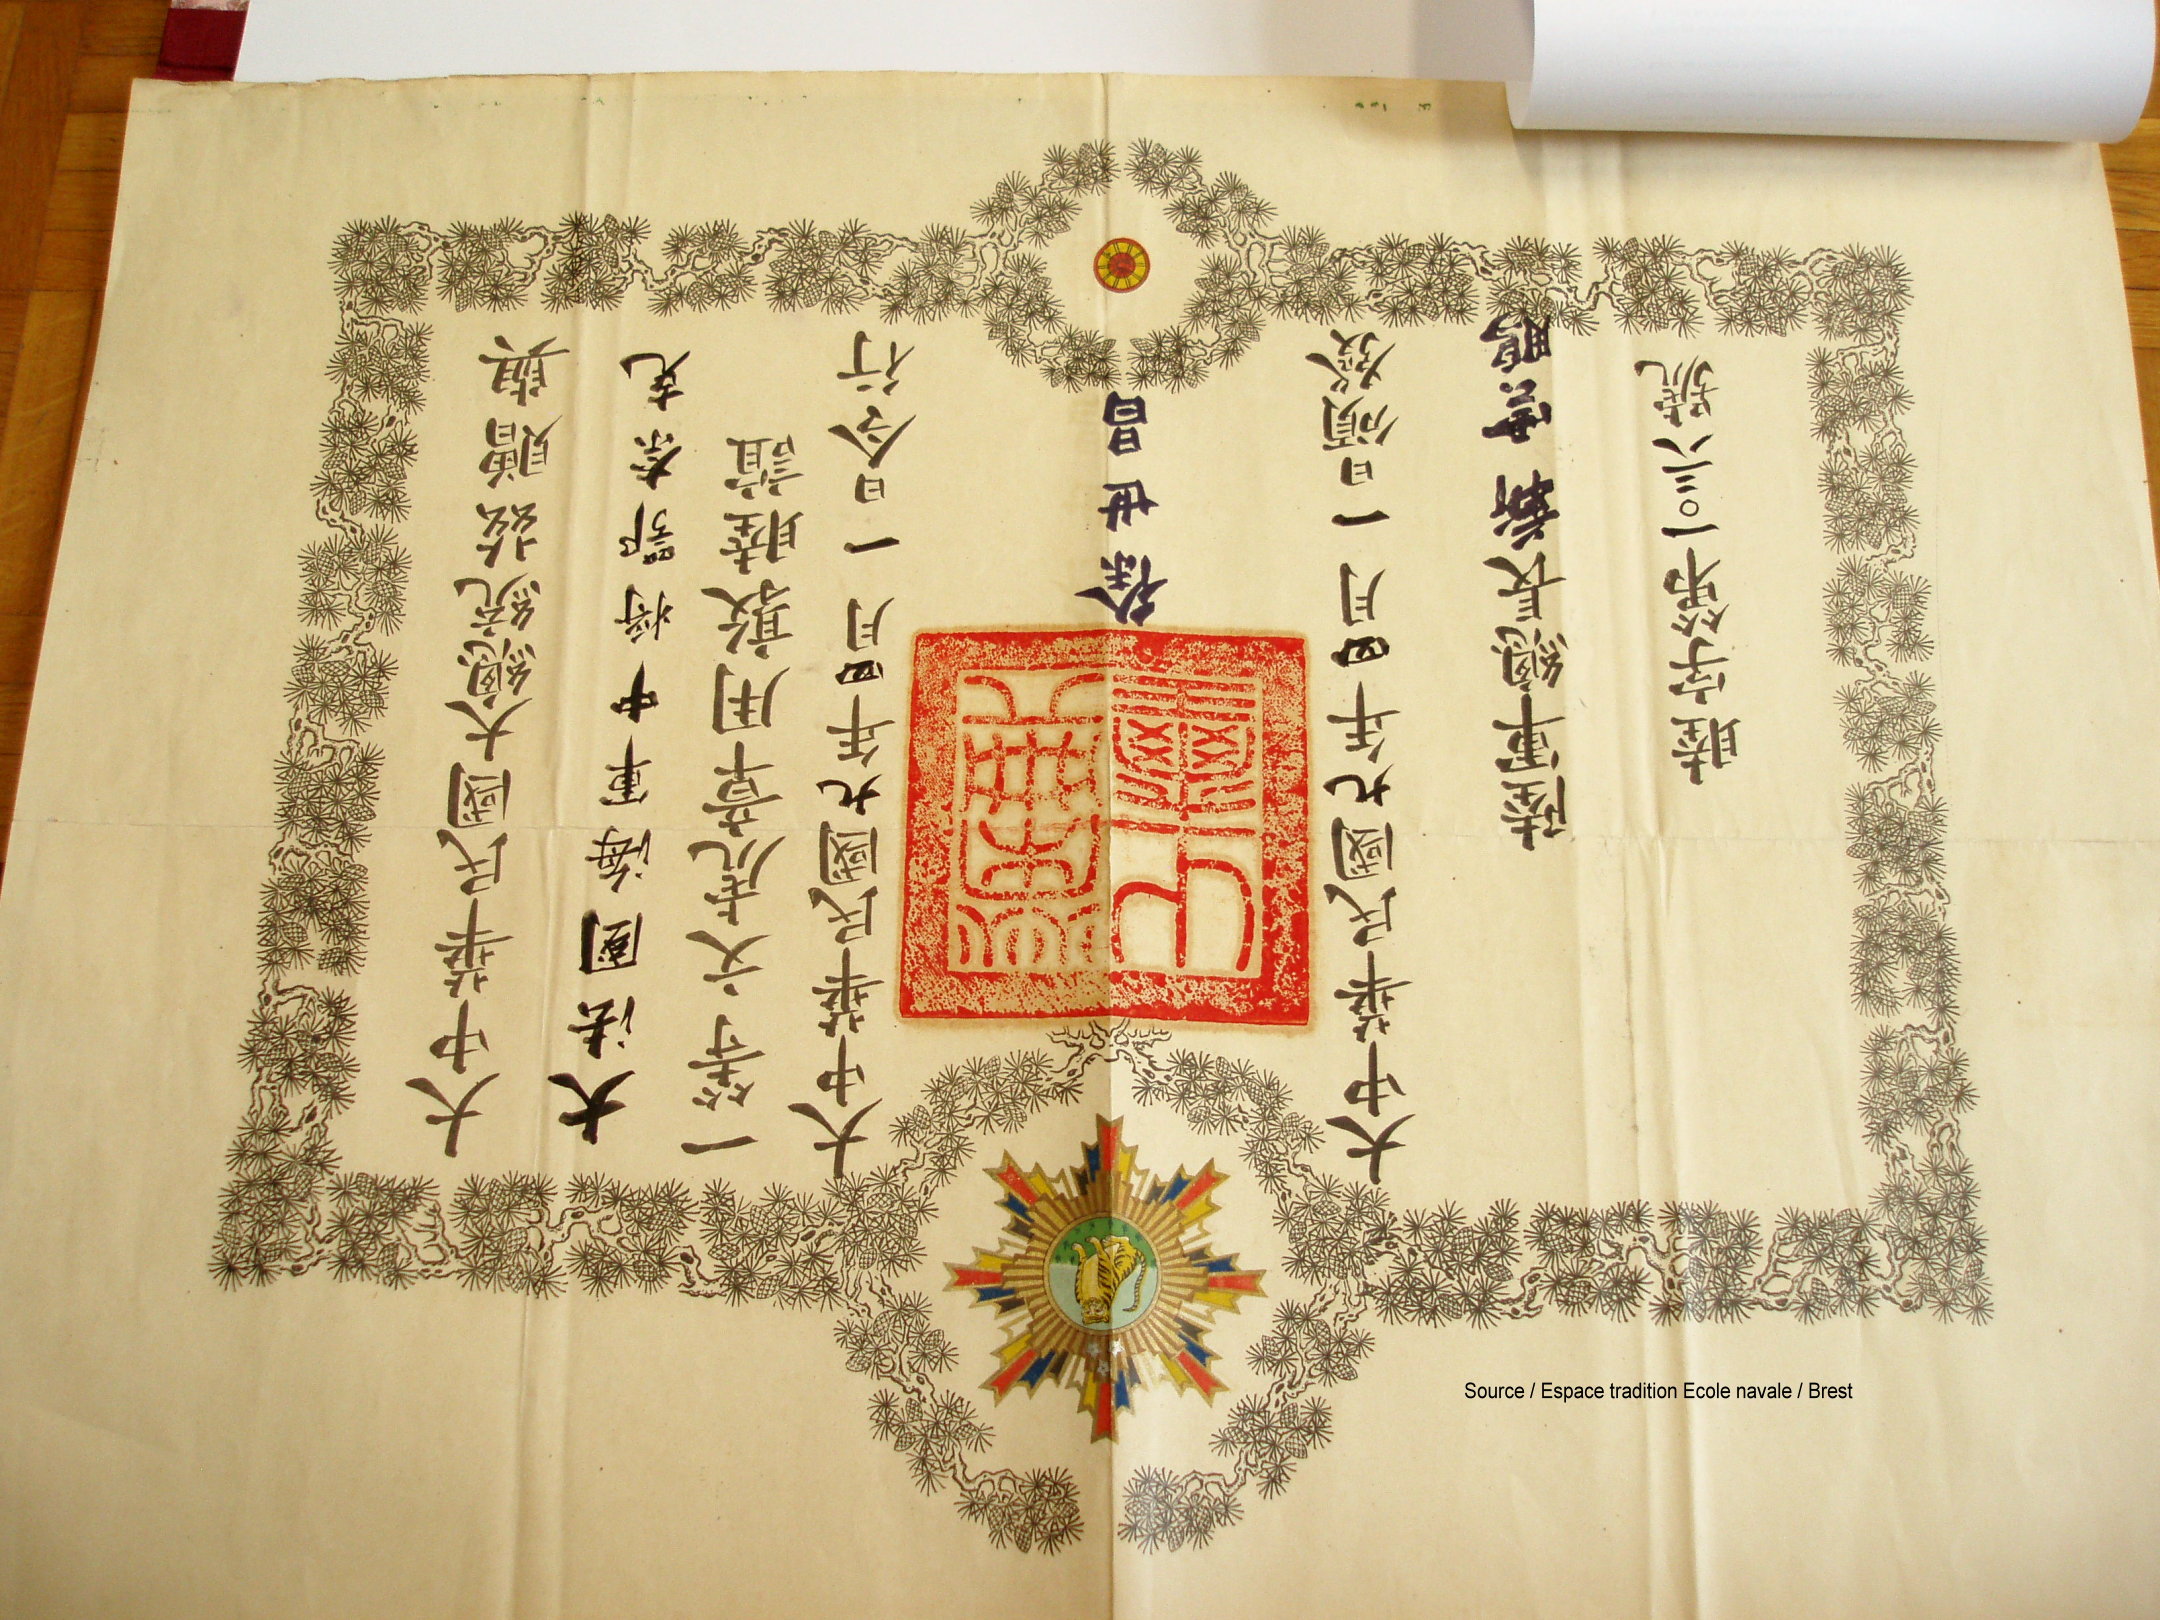 大中華民國大總統茲贈與
大法國海軍中將鄂奈克
一等文虎章用敦睦誼
大中華民國九年四月一日令行
徐世昌
榮典之璽
大中華民國九年四月一日頒發
陸軍總長靳雲鵬
陸字第一〇三六號
Source / Espace tradition Ecole navale / Brest